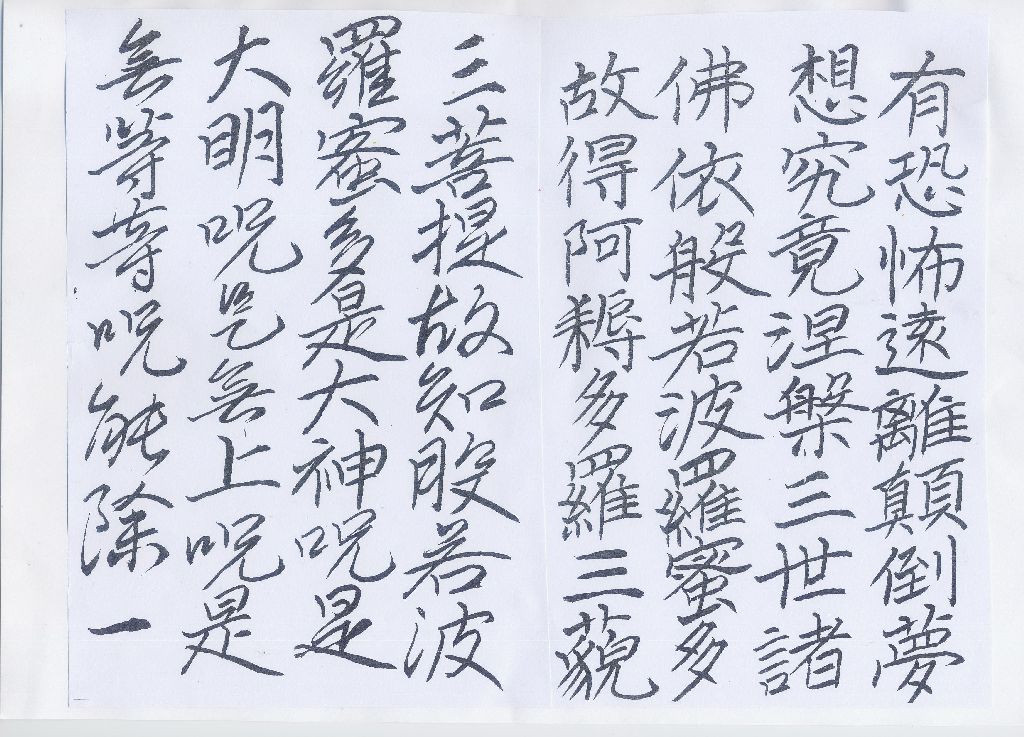 有恐怖遠離顛倒夢
想究竟涅槃三世諸
佛依般若波羅蜜多
故得阿耨多羅三藐
三菩提故知般若波
羅蜜多是大神呪是
大明呪是無上呪是
無等等呪能除一